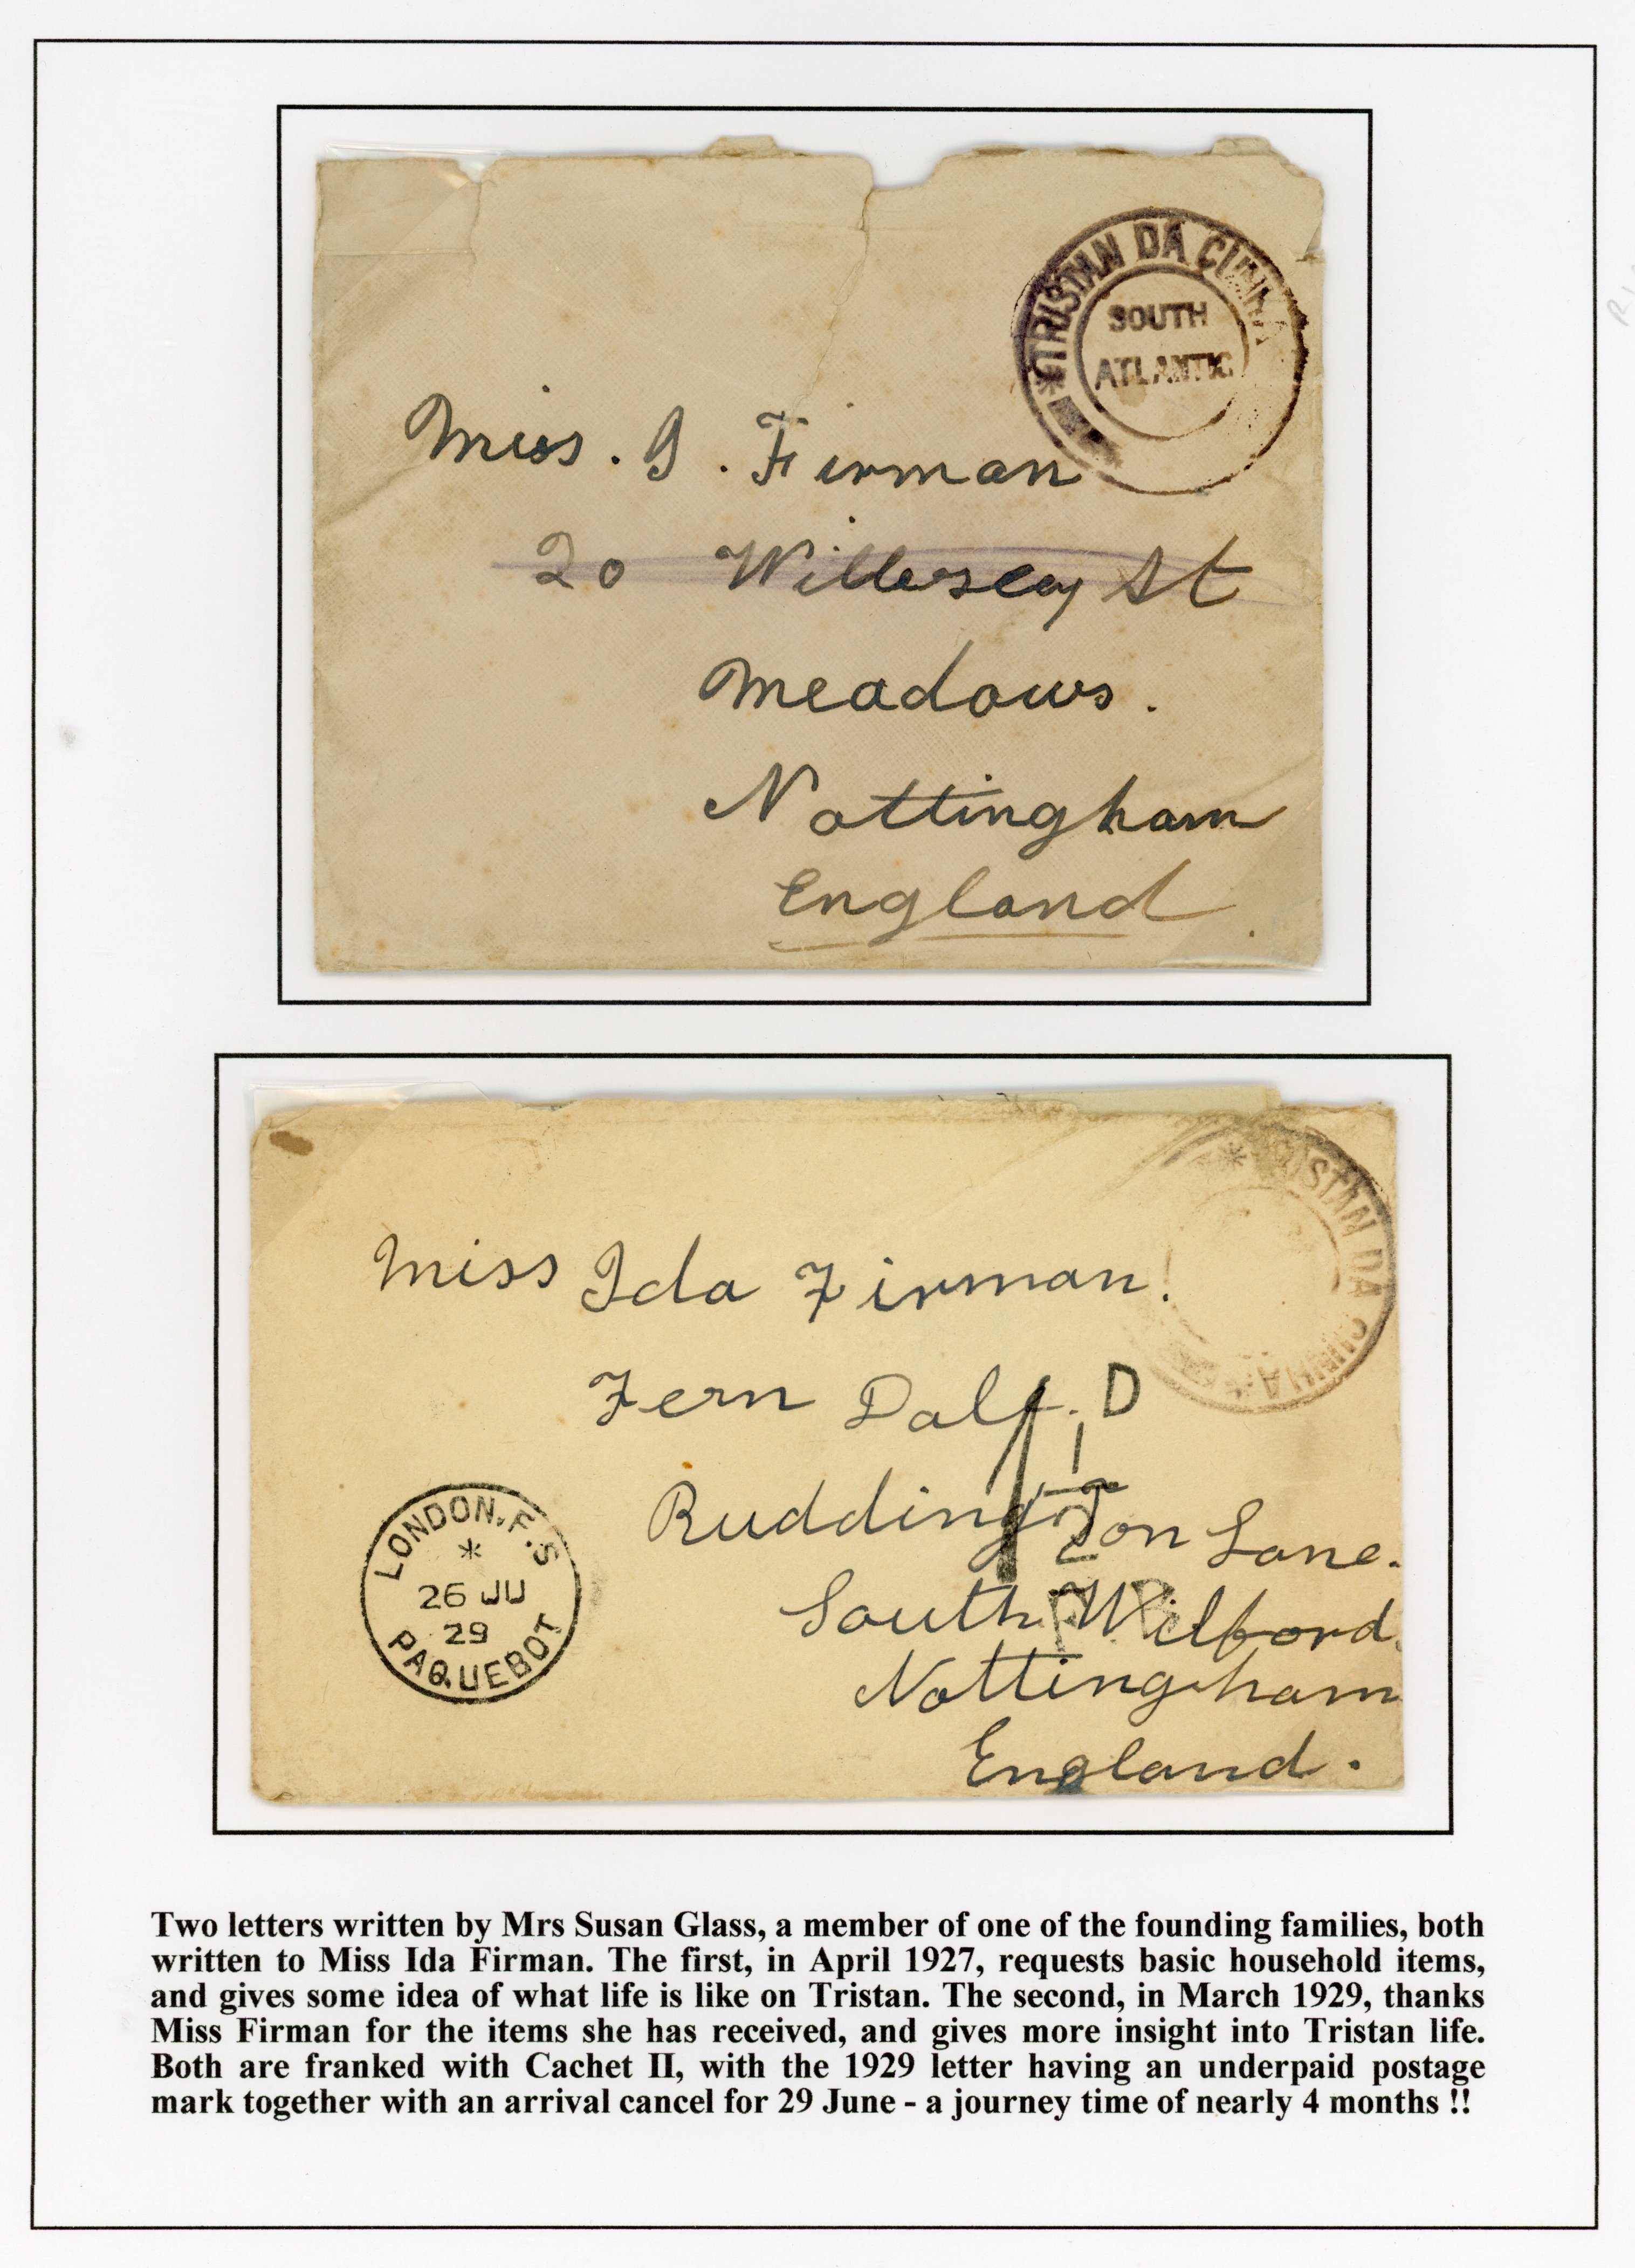 * TRISTAN DA CUNHA
SOUTH
ATLANTIC
Miss. I. Firman
20 Willersey St
Meadows.
Nottingham
England
* TRISTAN DA CUNHA
Miss Ida Firman.
Fern Dale.
D
1
2
Ruddington Lane.
South Wilford
Nottingham
England.
LONDON. F.S
*
26 JU
29
PAQUEBOT
Two letters written by Mrs Susan Glass, a member of one of the founding families, both
written to Miss Ida Firman. The first, in April 1927, requests basic household items,
and gives some idea of what life is like on Tristan. The second, in March 1929, thanks
Miss Firman for the items she has received, and gives more insight into Tristan life.
Both are franked with Cachet II, with the 1929 letter having an underpaid postage
mark together with an arrival cancel for 29 June - a journey time of nearly 4 months !!